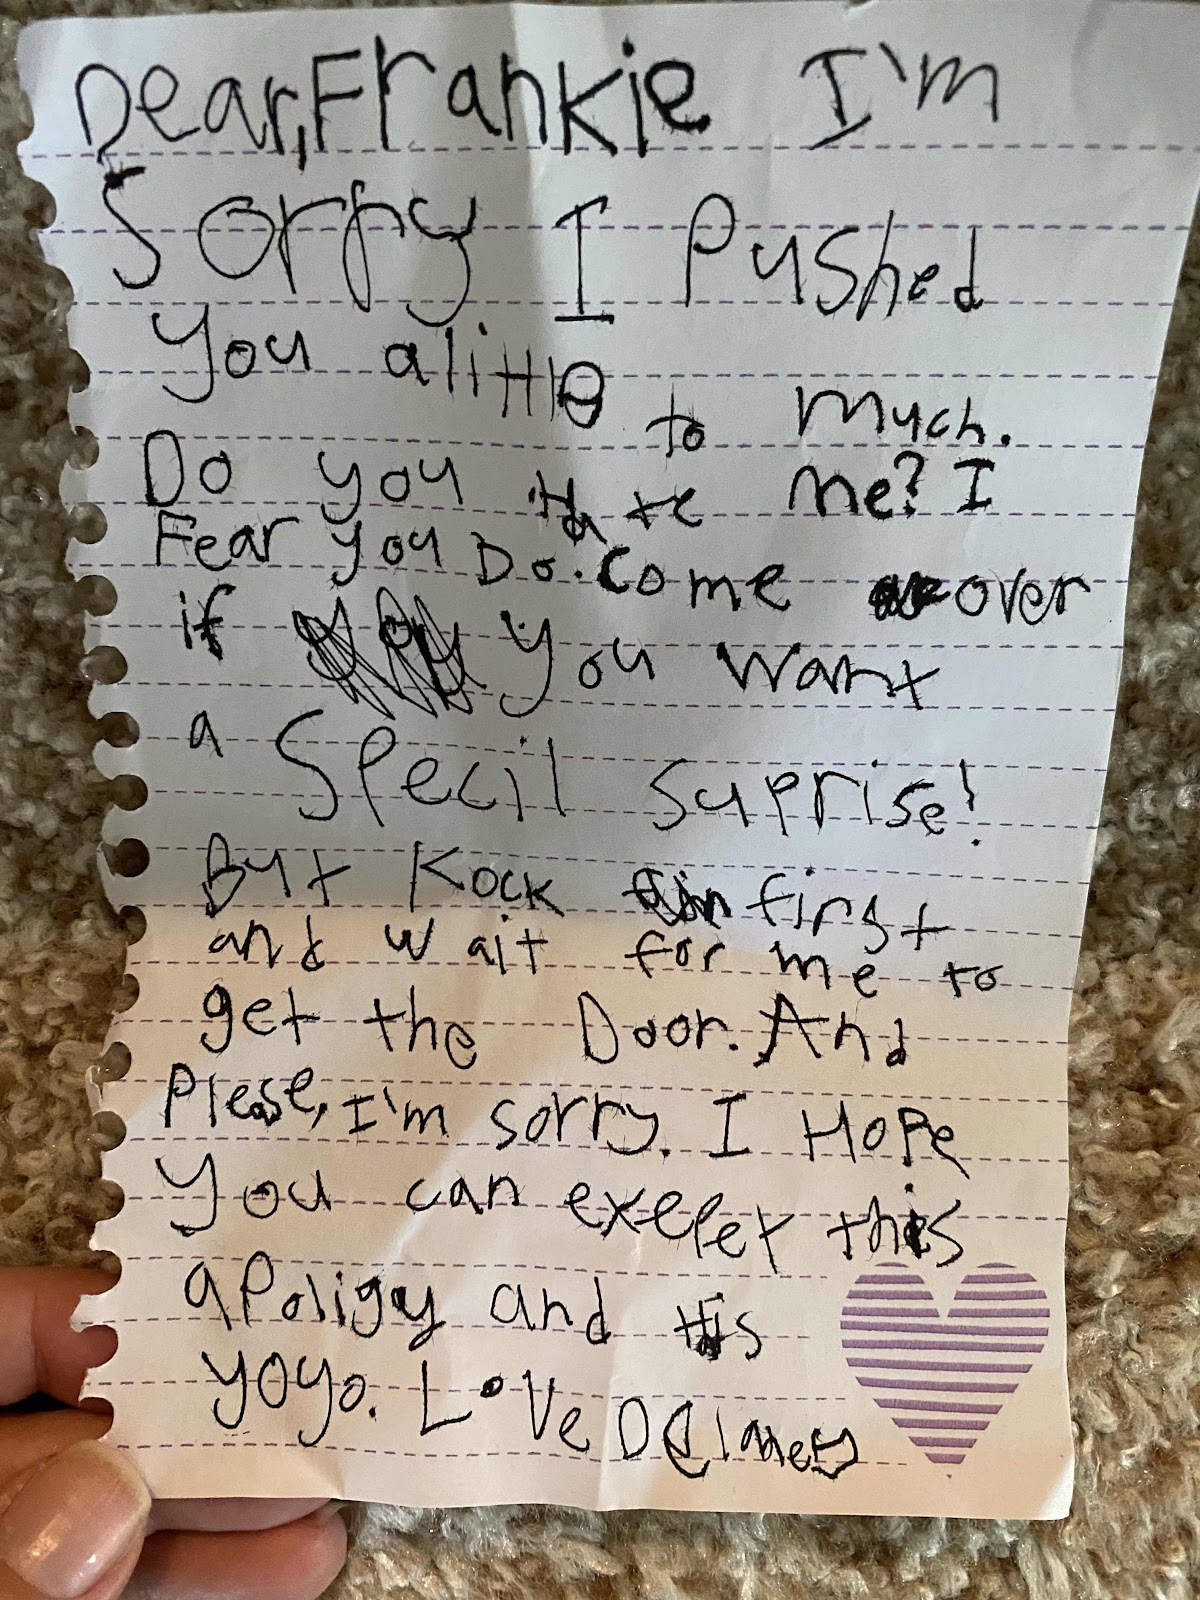 Dear, Frankie I'm
Sorry I Pushed
you alittle to much.
Do you Hate me? I
Fear you Do. Come over
if you want
a Specil suprise!
But Kock first
and wait for me to
get the Door. And
Please, I'm sorry. I Hope
you can exepet this
apoligy and this
yoyo. Love Delaney